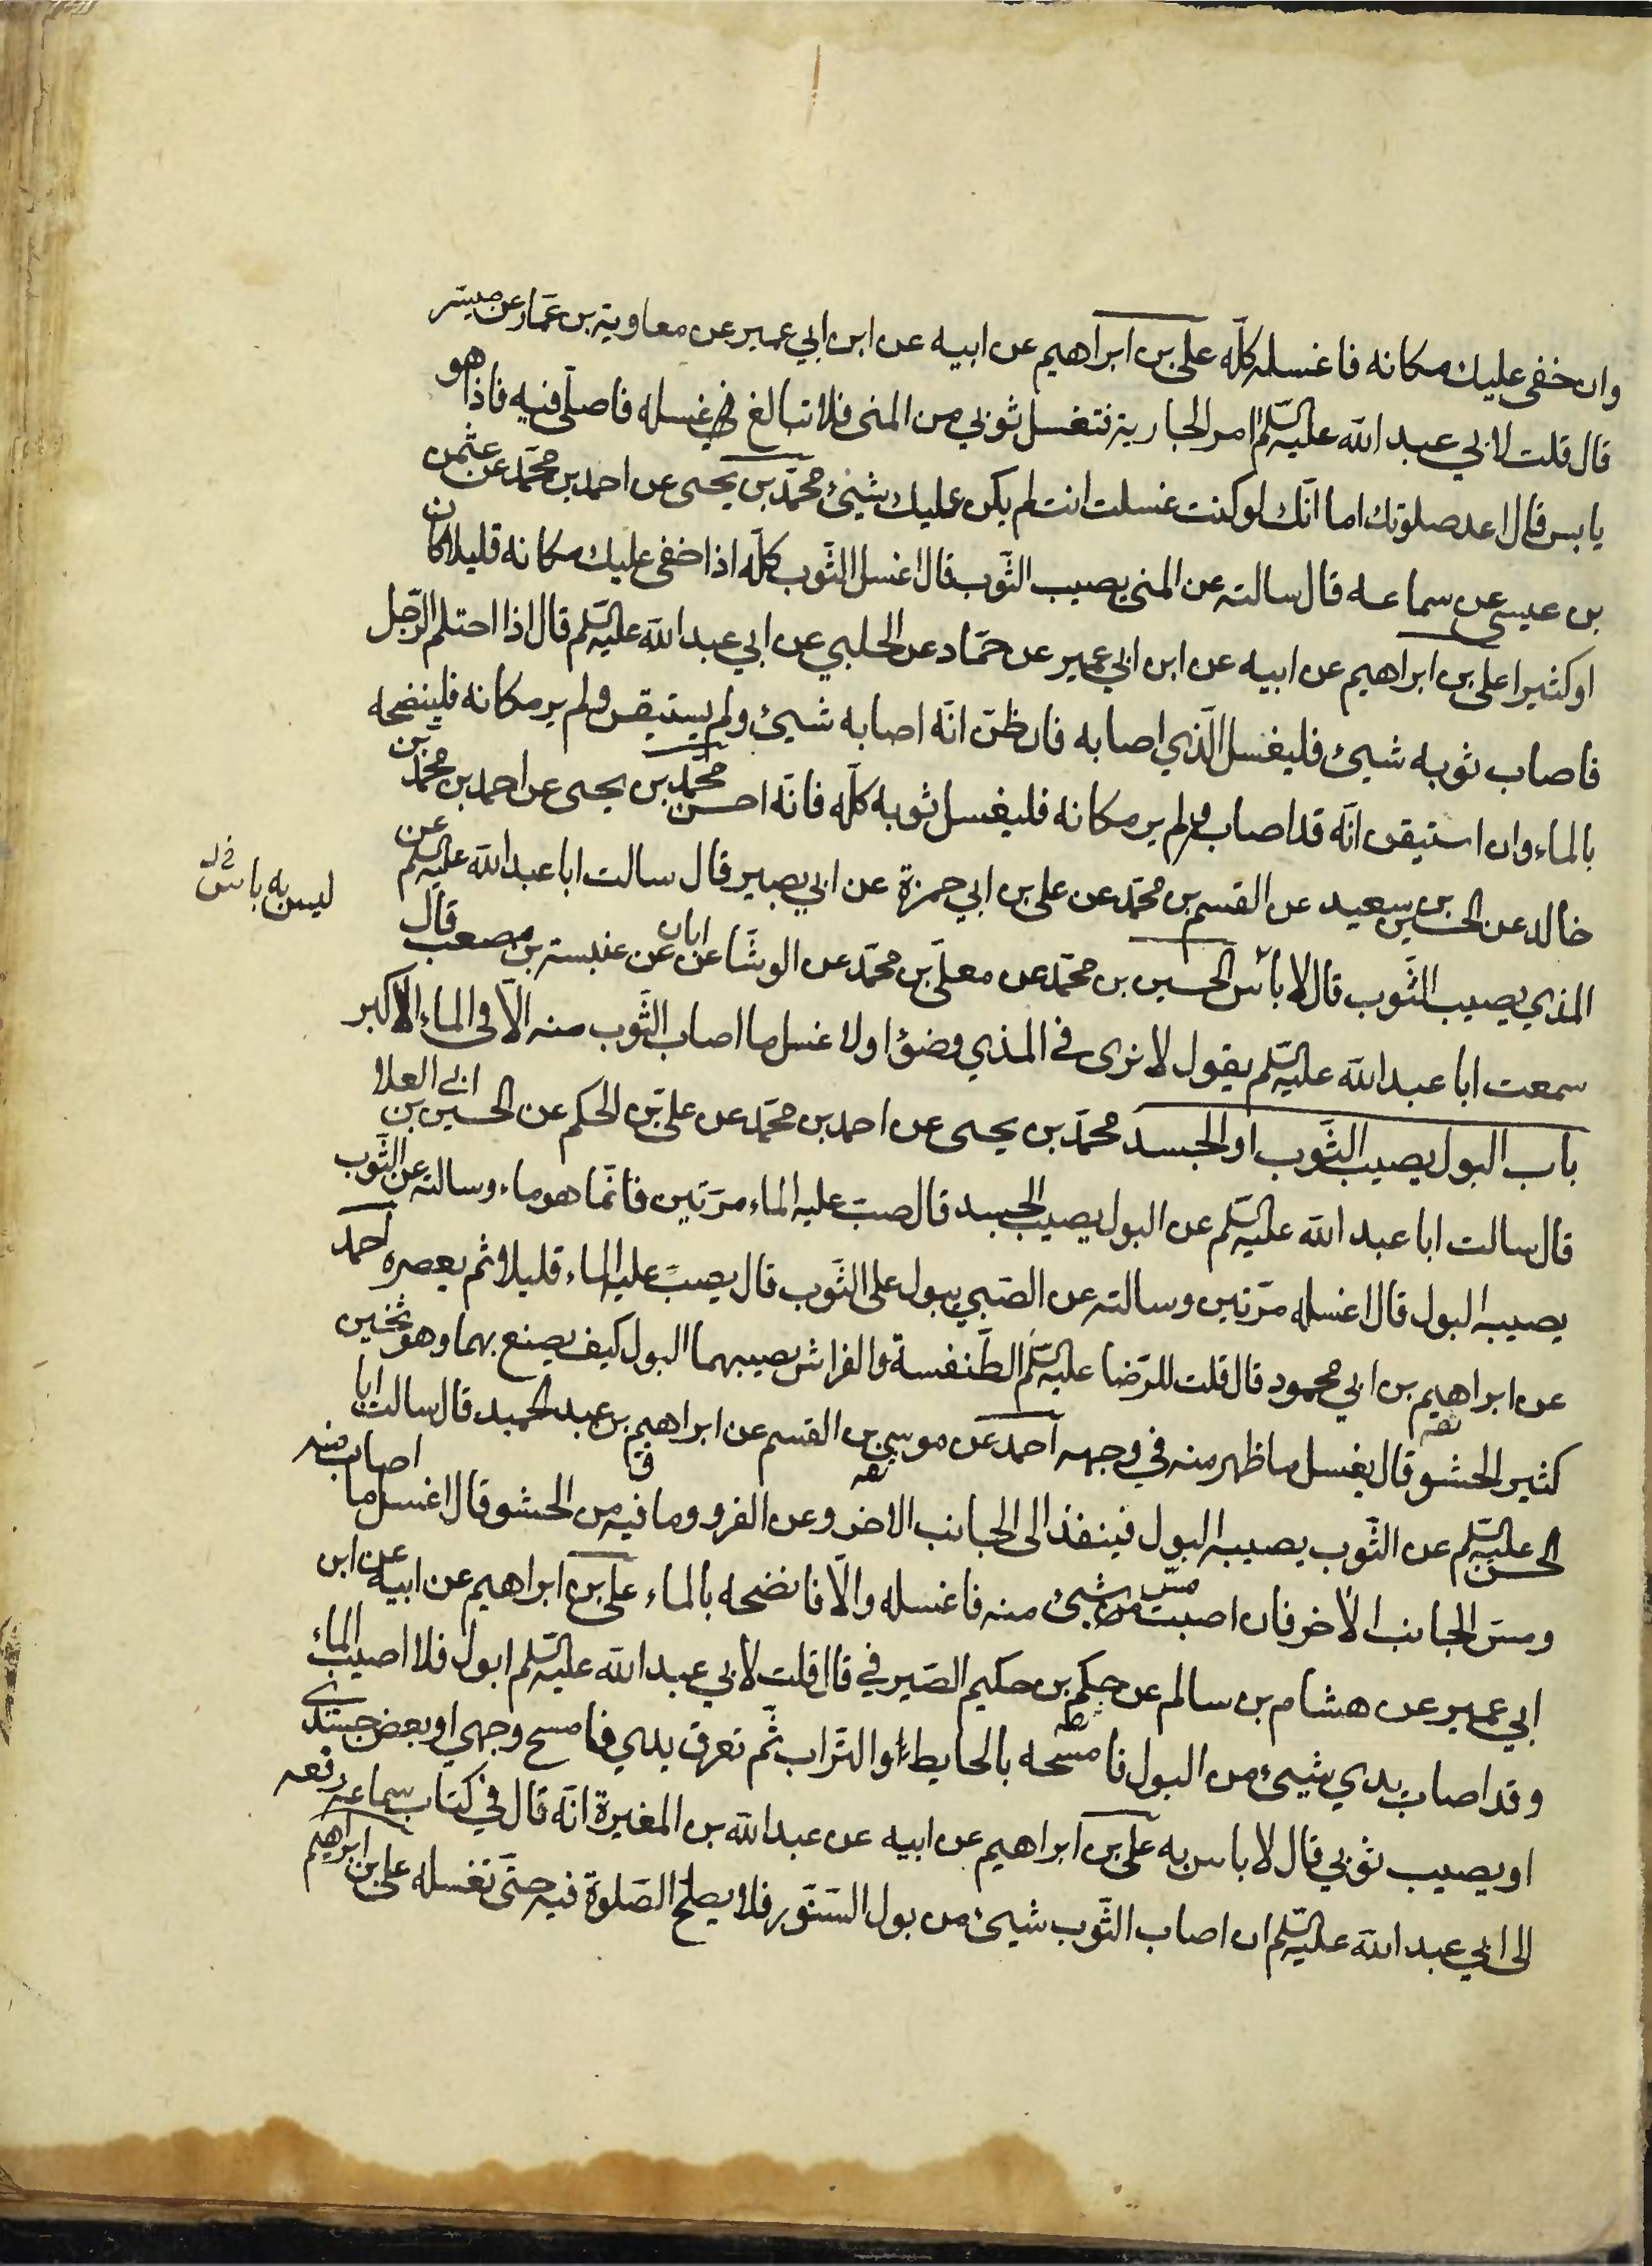 وان خفى عليك مكانه فاغسله كلّه علي بن ابراهيم عن ابيه عن ابن ابي عمير عن معاوية بن عمّار عن ميسّر
قال قلت لابي عبد الله عليه السّلم امر الجارية فتغسل ثوبي من المنى فلا تبالغ في غسله فاصلّى فيه فاذا هو
يابس قال اعد صلوتك اما انّك لو كنت غسلت انت لم يكن عليك شيئ محمّد بن يحيى عن احمد بن محمّد عن عثمن
بن عيسى عن سماعه قال سالته عن المنى يصيب الثّوب قال اغسل الثّوب كلّه اذا خفى عليك مكانه قليلا كان
او كثيرا علي بن ابراهيم عن ابيه عن ابن ابي عمير عن حمّاد عن الحلبي عن ابي عبد الله عليه السّلم قال اذا احتلم الرّجل
فاصاب ثوبه شيئ فليغسل الّذي اصابه فان ظنّ انّه اصابه شيئ ولم يستيقن ولم ير مكانه فلينضحه
بالماء وان استيقن انّه قد اصاب ولم ير مكانه فليغسل ثوبه كلّه فانّه احسن محمّد بن يحيى عن احمد بن محمّد بن
خالد عن الحسين بن سعيد عن القسم بن محمّد عن علي بن ابي حمزة عن ابي بصير قال سالت ابا عبد الله عليه السّلم عن
ليس به باس خ ل
المذي يصيب الثّوب قال لا باس الحسين بن محمّد عن معلّى بن محمّد عن الوشّا عن ابان عن عنبسة بن مصعب قال
سمعت ابا عبد الله عليه السّلم يقول لا نرى في المذي وضؤا ولا غسل ما اصاب الثّوب منه الّا في الماء الاكبر
باب البول يصيب الثّوب او الجسد محمّد بن يحيى عن احمد بن محمّد عن علي بن الحكم عن الحسين بن ابي العلا
قال سالت ابا عبد الله عليه السّلم عن البول يصيب الجسد قال صبّ عليه الماء مرّتين فانّما هو ماء وسالته عن الثّوب
يصيبه البول قال اغسله مرّتين وسالته عن الصّبي يبول على الثّوب قال يصبّ عليه الماء قليلا ثم يعصره احمد
عن ابراهيم بن ابي محمود قال قلت للرّضا عليه السّلم الطّنفسة والفراش يصيبهما البول كيف يصنع بهما وهو ثخين
كثير الحشو قال يغسل ما ظهر منه في وجهه احمد عن موسى بن القسم عن ابراهيم بن عبد الحميد قال سالت ابا
الحسن عليه السّلم عن الثّوب يصيبه البول فينفذ الى الجانب الاخر وعن الفرو وما فيه من الحشو قال اغسل ما اصاب منه
ومسّ الجانب الاخر فان اصبت مسّ شيئ منه فاغسله والّا فانضحه بالماء علي بن ابراهيم عن ابيه عن ابن
ابي عمير عن هشام بن سالم عن حكم بن حكيم الصّيرفي قال قلت لابي عبد الله عليه السّلم ابول فلا اصيب الماء
وقد اصاب يدي شيئ من البول فامسحه بالحايط او التّراب ثمّ تعرق يدي فامسح وجهي او بعض جسدي
او يصيب ثوبي قال لا باس به علي بن ابراهيم عن ابيه عن عبد الله بن المغيرة انّه قال في كتاب سماعه رفعه
الى ابي عبد الله عليه السّلم ان اصاب الثّوب شيئ من بول السّنّور فلا يصلح الصّلوة فيه حتّى تغسله علي بن ابراهيم